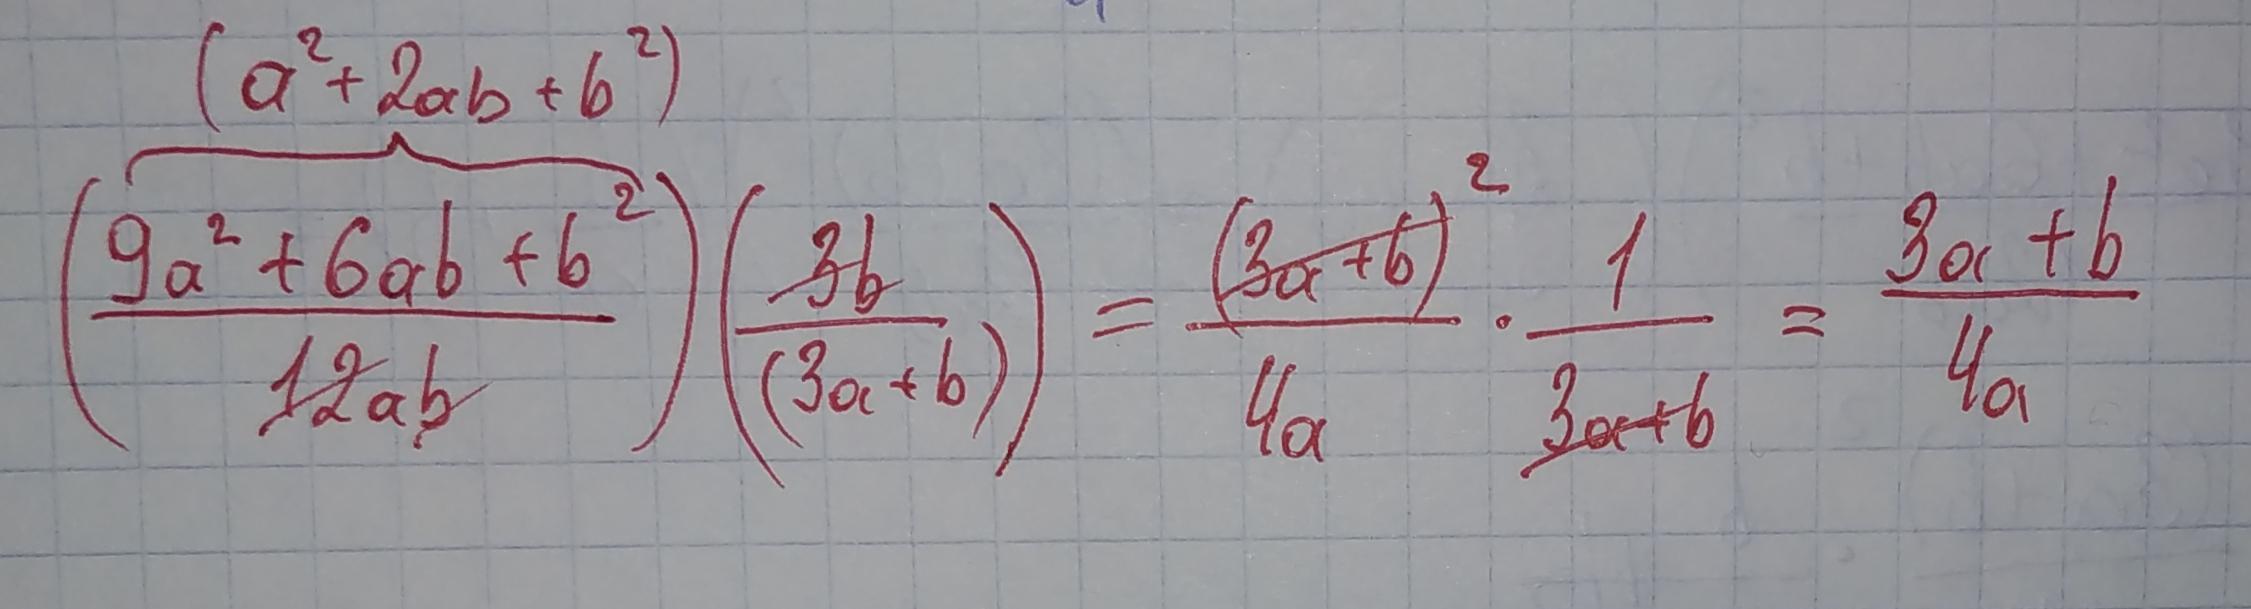 (a² + 2ab + b²)
((9a² + 6ab + b²)/(12ab)) (3b/(3a + b)) = (3a + b)²/(4a) · 1/(3a + b) = (3a + b)/(4a)